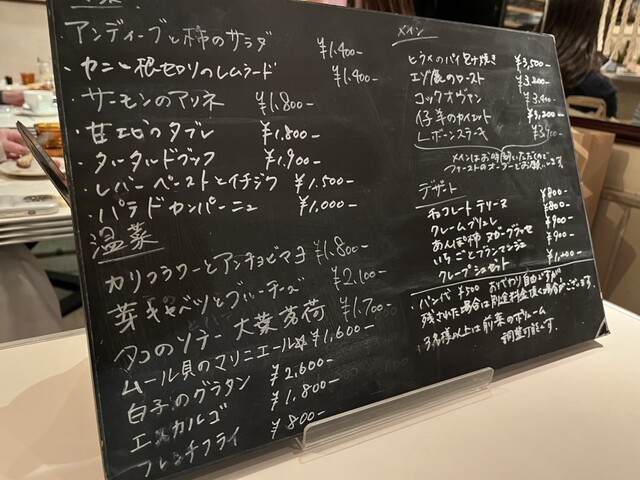 菜
・アンディーブと柿のサラダ ¥1.400-
・カニと根セロリのレムラード ¥1.900-
・サーモンのマリネ ¥1.800-
・甘エビのタブレ ¥1.800-
・タルタルドブッフ ¥1.900-
・レバーペーストとイチジク ¥1.500-
・パテドカンパーニュ ¥1.000-
温菜
カリフラワーとアンチョビマヨ ¥1.800-
芽キャベツとブルーチーズ ¥2.100-
タコのソテー 大葉茗荷 ¥1.700-
ムール貝のマリニエール ¥1,600-
白子のグラタン ¥2.600-
エスカルゴ ¥1.800-
フレンチフライ ¥800-
メイン
ヒラメのパイ包み焼き ¥3,500-
エゾ鹿のロースト ¥3.200-
コックオヴァン ¥3,400-
仔羊のナヴァラン ¥3,200-
Lボーンステーキ
メインはお時間いただくので
ファーストのオーダーでお願いします。
デザート
チョコレートテリーヌ ¥800-
クレームブリュレ ¥800-
あんぽ柿 ヌガーグラッセ ¥900-
いちごとブランマンジェ ¥900-
クレープシュゼット ¥1,200-
・パンバ ¥500 おかわり自由ですが
残された場合は別途料金頂く場合がございます。
・3名様以上は前菜のボリューム
調整可能です。